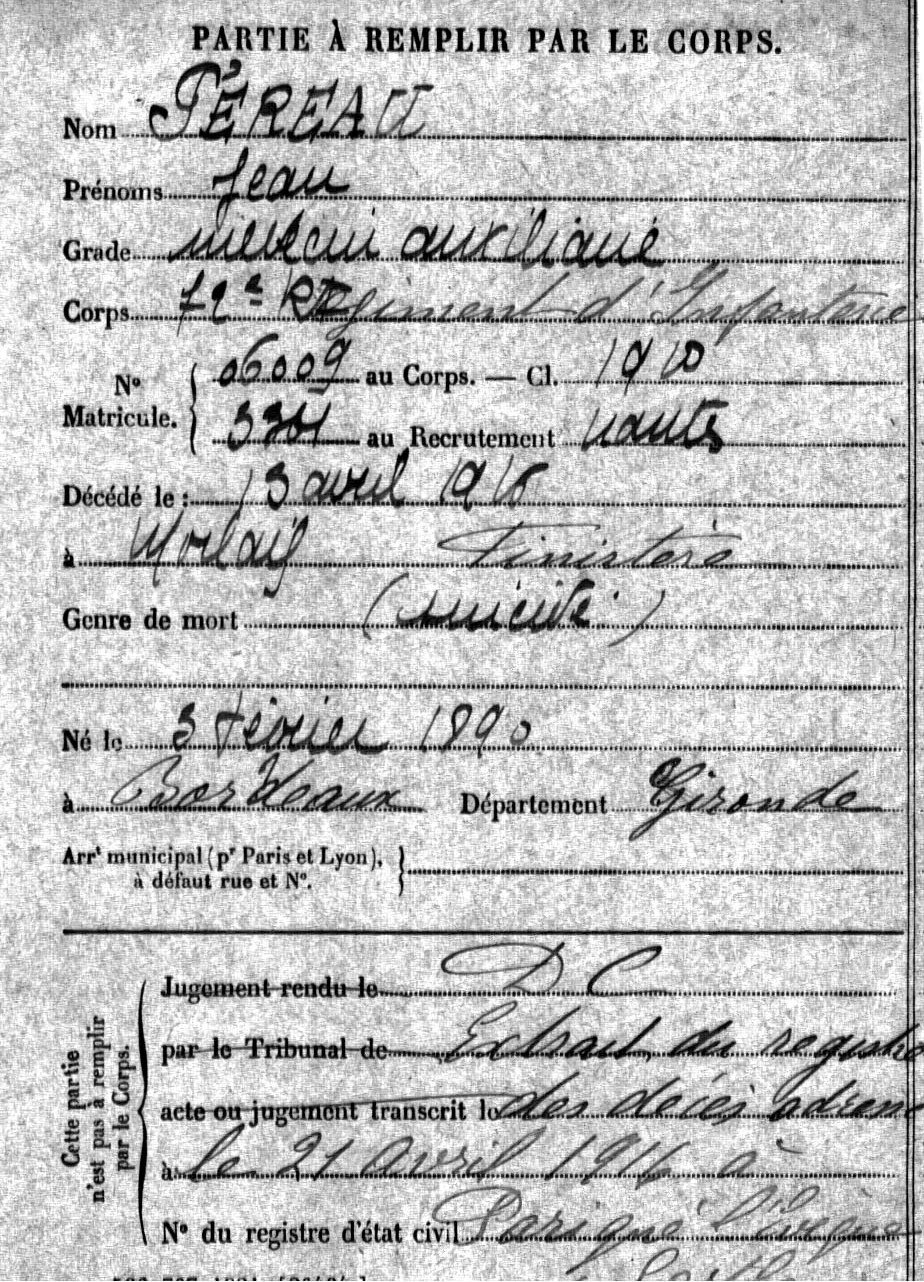 PARTIE À REMPLIR PAR LE CORPS.
Nom PÉREAU
Prénoms Jean
Grade médecin auxiliaire
Corps 72e Régiment d'Infanterie
No Matricule. 06009 au Corps. — Cl. 1910
au Recrutement Nantes
Décédé le : 13 avril
à Morlaix Finistère
Genre de mort (suicide)
Né le 3 Février 1890
à Bordeaux Département Gironde
Arrt municipal (pr Paris et Lyon),
à défaut rue et No.
Cette partie
n'est pas à remplir
par le Corps.
Jugement rendu le D C
par le Tribunal de Extrait du registre
acte ou jugement transcrit le des décès
à le 21 avril à
No du registre d'état civil Parigné l'Evêque